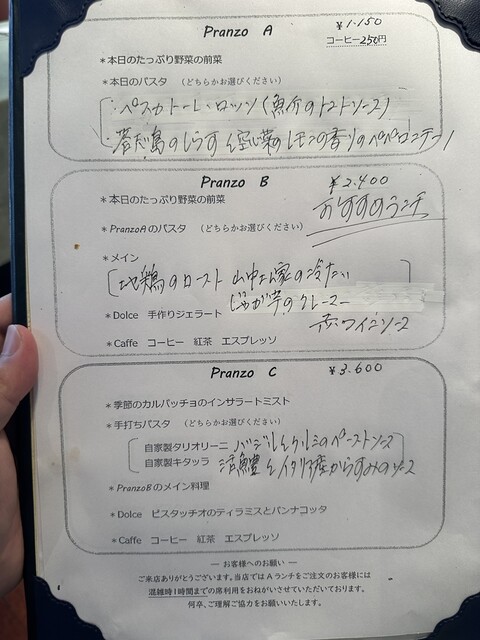 Pranzo A ¥1.150
コーヒー250円
*本日のたっぷり野菜の前菜
*本日のパスタ (どちらかお選びください)
・ペスカトーレ・ロッソ(魚介のトマトソース)
・答志島のしらすと空心菜のレモンの香りのペペロンチーノ
Pranzo B ¥2.400
*本日のたっぷり野菜の前菜 おすすめランチ
*PranzoAのパスタ (どちらかお選びください)
*メイン
地鶏のロースト 山中さん家の冷たい
じゃが芋のクレーマー
*Dolce 手作りジェラート 赤ワインソース
*Caffe コーヒー 紅茶 エスプレッソ
Pranzo C ¥3.600
*季節のカルパッチョのインサラートミスト
*手打ちパスタ (どちらかお選びください)
自家製タリオリーニ バジルとクルミのペーストソース
自家製キタッラ 活鱧とイタリア産からすみのソース
*PranzoBのメイン料理
*Dolce ピスタッチオのティラミスとパンナコッタ
*Caffe コーヒー 紅茶 エスプレッソ
― お客様へのお願い ―
ご来店ありがとうございます。当店ではAランチをご注文のお客様には
混雑時1時間までの席利用をおねがいさせていただいております。
何卒、ご理解ご協力をお願いいたします。